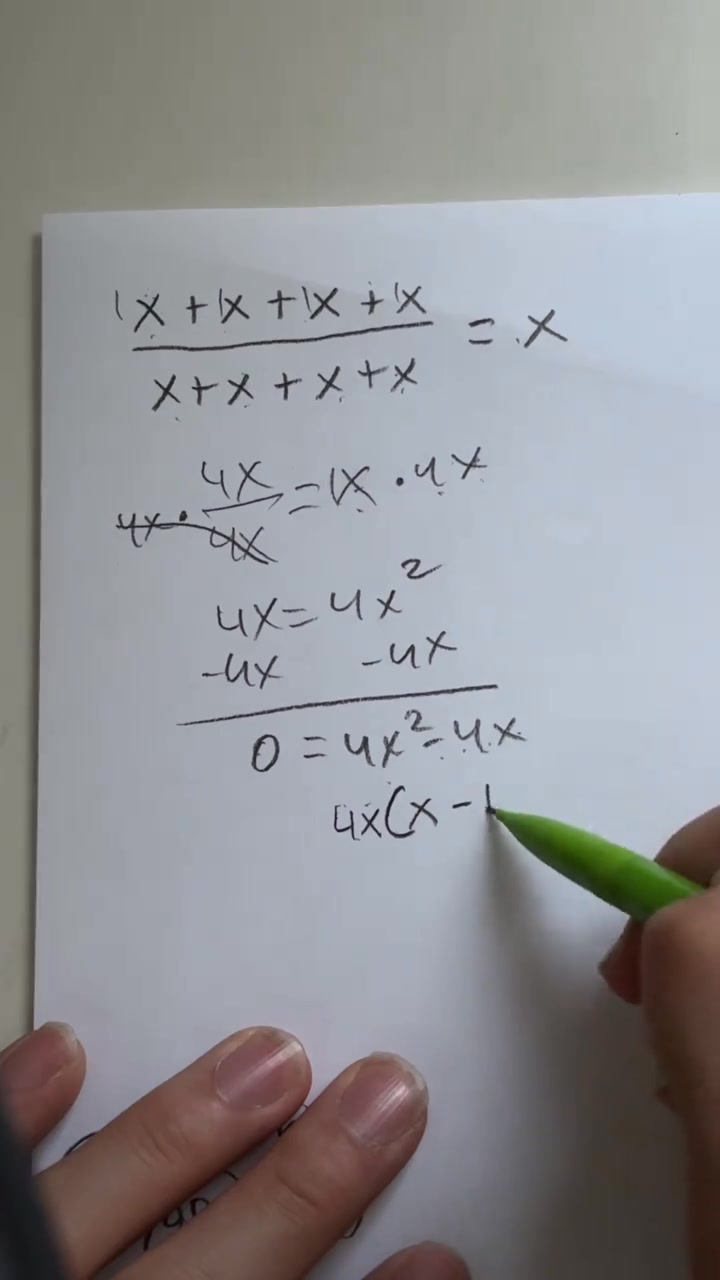 1x + 1x + 1x + 1x
= x
x + x + x + x
4x · 4x/4x = 1x · 4x
4x = 4x²
-4x -4x
0 = 4x² - 4x
4x(x - 1